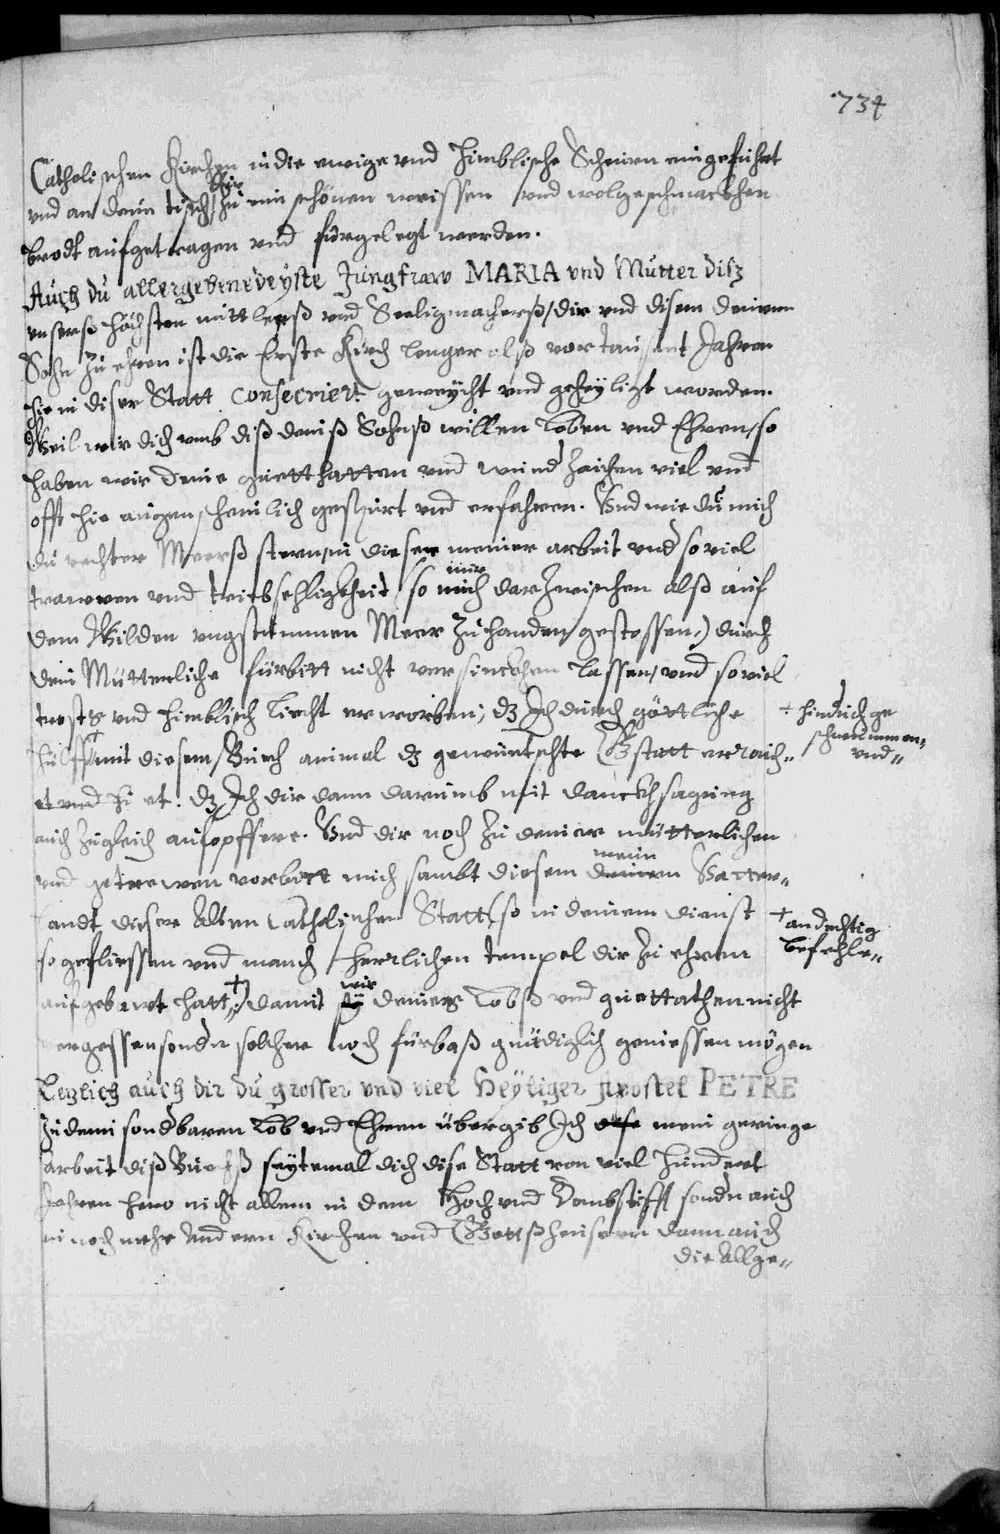 734
Catholischen Kirchen in die ewige und Himblische Scheiren eingefuhrt
und an dein tisch dir zu ein schönen weissen und wolgeschmackhen
brodt aufgetragen und fürgelegt werden.
Auch du allergebenedeyste Jungfraw MARIA und Mutter disz
unserß höchsten mittlerß und Seeligmacherß/ dir und disem deinem
Sohn zu ehren ist die Erste Kirch lenger alß vor tausent Jahren
hie in diser Statt consecriert geweycht und geheyligt worden.
Weil wir dich umb diß deinß Sohnß willen Loben und Ehren, so
haben wir deine guetthatten und wunderzaichen viel und
offt hie augenscheinlich gespürt und erfahren. Und wie du mich
du rechter Meerß stern, in dieser meiner arbeit und so viel
trawren und trüebseligkheit (so mir darzwischen alß auf
dem Wilden ungstimmen Meer zuhanden gestossen,) durch
dein Mütterliche fürbitt nicht versinckhen lassen, und so viel
trosts und himblisch liecht erworben; dz Ich durch göttliche
+ hindurch ge
schwummen
und
hülff + mit diesem Buech ainmal dz gewüntschte Gstatt erraich
et und . dz Ich dir dann darumb mit danckhsagung
auch zugleich aufopffere. Und dir noch zu deiner mütterlichen
und getrewen vorbitt mich sambt diesem mein Vatter
landt dieser Alten Catholischen Statt (so in deinem dienst
+ andechtig
befehle
so geflissen und manch Herrlichen tempel dir zu ehren
aufgebawt hatt +) damit wir deines Lobß und guettathen nicht
vergessen sonder solcher noch fürbaß gnädiglich geniessen mögen
Lezlich auch dir du grosser und viel Heyliger Apostel PETRE
zu deim sondbaren Lob und Ehren übergib Ich mein geringe
arbeit diß Buechß seytemal dich dise Statt von viel hundert
Jahren hero nicht allein in dem Hoch und Dombstifft sondn auch
in noch mehr andern Kirchen und Gottßheusern dann auch
die Allge